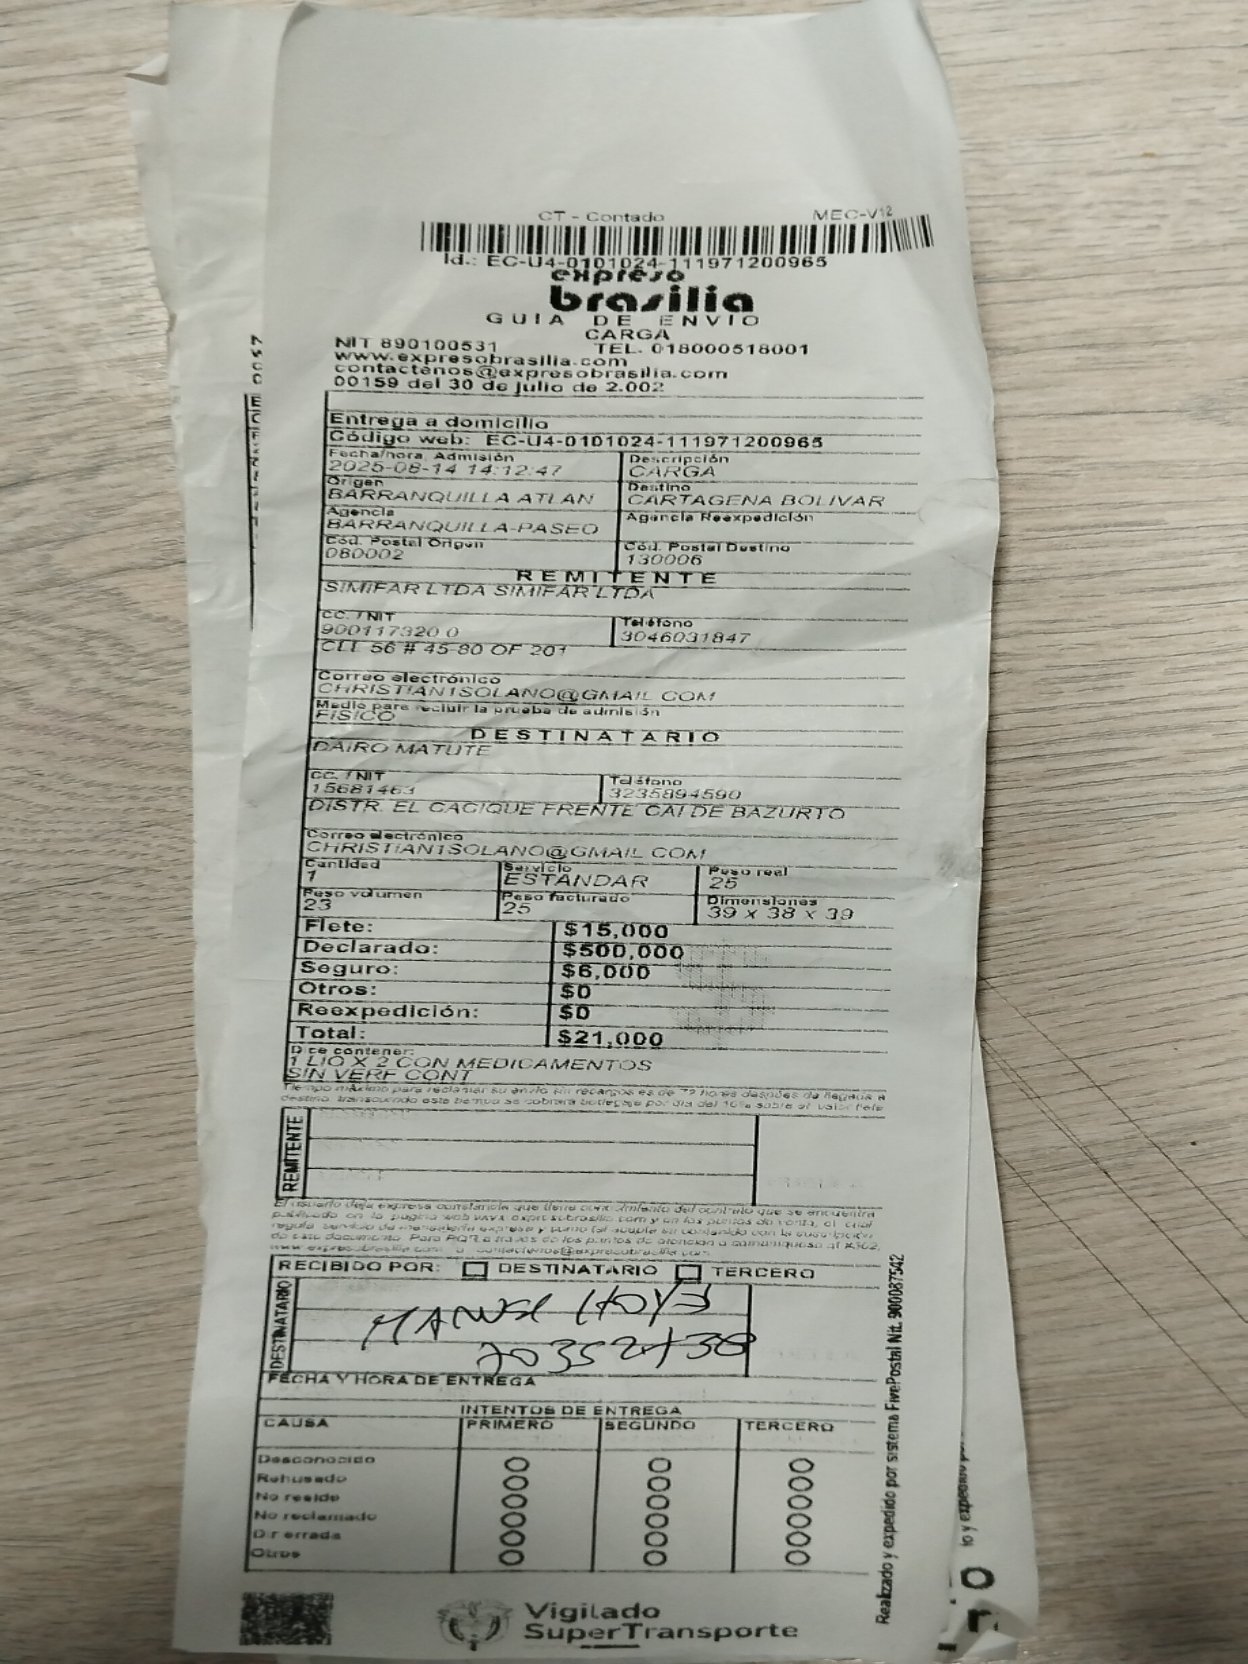 CT - Contado MEC-V12
Id.: EC-U4-0101024-111971200965
expreso
brasilia
GUIA DE ENVIO
CARGA
NIT 890100531 TEL. 018000518001
www.expresobrasilia.com
contactenos@expresobrasilia.com
00159 del 30 de julio de 2.002
Entrega a domicilio
Código web: EC-U4-0101024-111971200965
Fecha/hora, Admisión Descripción
2025-08-14 14:12:47 CARGA
Origen Destino
BARRANQUILLA ATLAN CARTAGENA BOLIVAR
Agencia Agencia Reexpedición
BARRANQUILLA-PASEO
Cód. Postal Origen Cód. Postal Destino
080002 130006
REMITENTE
SIMIFAR LTDA SIMIFAR LTDA
CC. / NIT Teléfono
900117320 0 3046031847
CLL 56 # 45-80 OF 201
Correo electrónico
CHRISTIAN1SOLANO@GMAIL COM
Medio para recibir la prueba de admisión
FISICO
DESTINATARIO
DAIRO MATUTE
CC. / NIT Teléfono
15681463 3235894590
DISTR. EL CACIQUE FRENTE CAI DE BAZURTO
Correo electrónico
CHRISTIAN1SOLANO@GMAIL COM
Cantidad Servicio Peso real
1 ESTANDAR 25
Peso volumen Peso facturado Dimensiones
23 25 39 x 38 x 39
Flete: $15,000
Declarado: $500,000
Seguro: $6,000
Otros: $0
Reexpedición: $0
Total: $21,000
Dice contener:
1 LIO X 2 CON MEDICAMENTOS
SIN VERF CONT
Tiempo máximo para reclamar su envío sin recargos es de 72 horas después de llegada a
destino, transcurrido este tiempo se cobrará bodegaje por día del 10% sobre el valor flete
REMITENTE
El usuario deja expresa constancia que tiene conocimiento del contrato que se encuentra
publicado en la pagina web www expresobrasilia com y en los puntos de venta, el cual
regula servicio de mensajería expresa y
de este documento. Para PQR a través de los puntos de atención o comuníquese al
www.expresobrasilia.com o contactenos@expresobrasilia.com
RECIBIDO POR: DESTINATARIO TERCERO
DESTINATARIO
FECHA Y HORA DE ENTREGA
INTENTOS DE ENTREGA
CAUSA PRIMERO SEGUNDO TERCERO
Desconocido
Rehusado
No reside
No reclamado
Dir errada
Otros
Realizado y expedido por sistema FivePostal Nit. 900087542
Vigilado
SuperTransporte